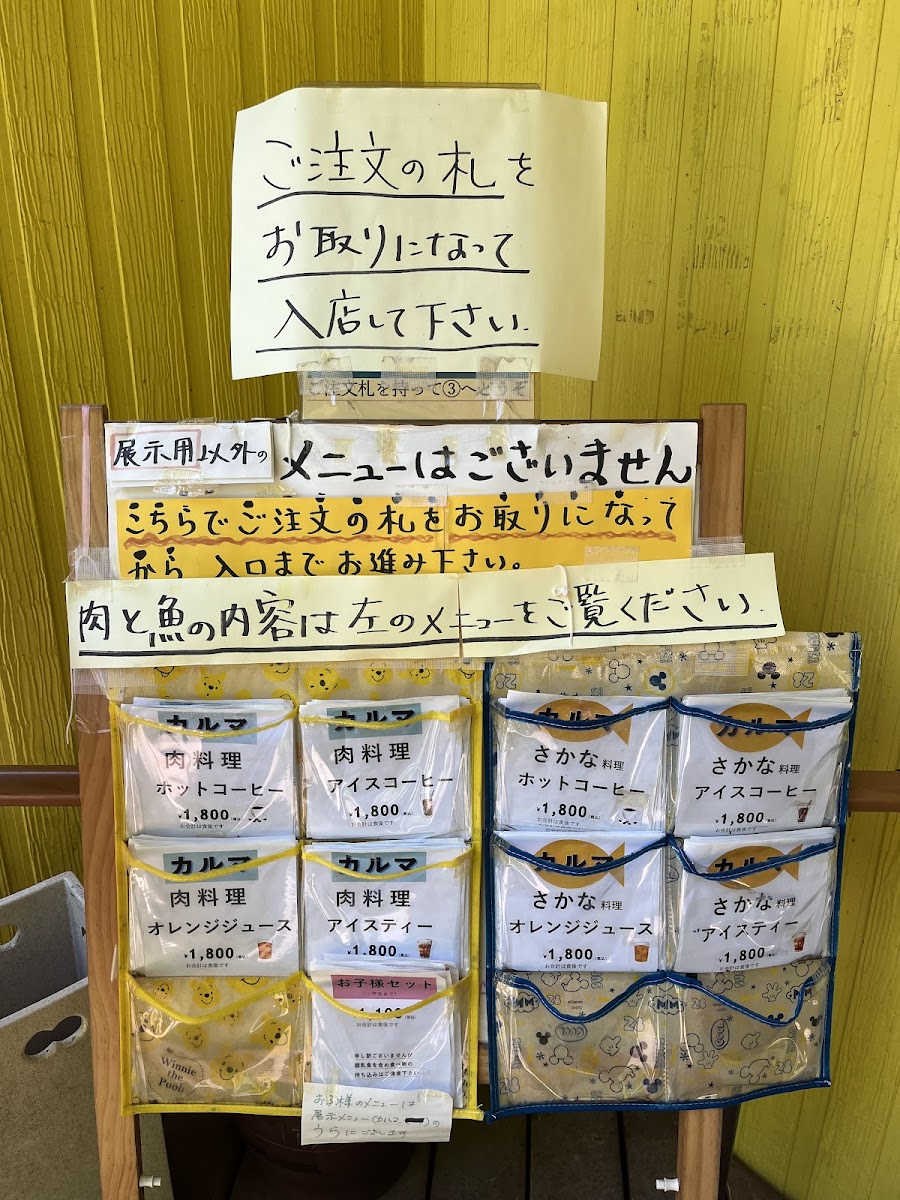 ご注文の札を
お取りになって
入店して下さい.
ご注文札を持って③へどうぞ
展示用以外の
メニューはございません
こちらでご注文の札をお取りになって
から 入口までお進み下さい。
肉と魚の内容は左のメニューをご覧ください.
カルマ
肉料理
ホットコーヒー
¥1,800(税込)
お会計は食後です
カルマ
肉料理
アイスコーヒー
¥1,800(税込)
お会計は食後です
カルマ
さかな料理
ホットコーヒー
¥1,800(税込)
お会計は食後です
カルマ
さかな料理
アイスコーヒー
¥1,800(税込)
お会計は食後です
カルマ
肉料理
オレンジジュース
¥1,800(税込)
お会計は食後です
カルマ
肉料理
アイスティー
¥1,800(税込)
カルマ
さかな料理
オレンジジュース
¥1,800(税込)
お会計は食後です
カルマ
さかな料理
アイスティー
¥1,800(税込)
お会計は食後です
お子様セット
(小学生まで)
お会計は食後です
申し訳ございませんが
離乳食を含め食べ物の
持ち込みはご遠慮下さい
お子様のメニューは
展示メニュー(カルマ
)の
うらにございます
Winnie
the
Pooh